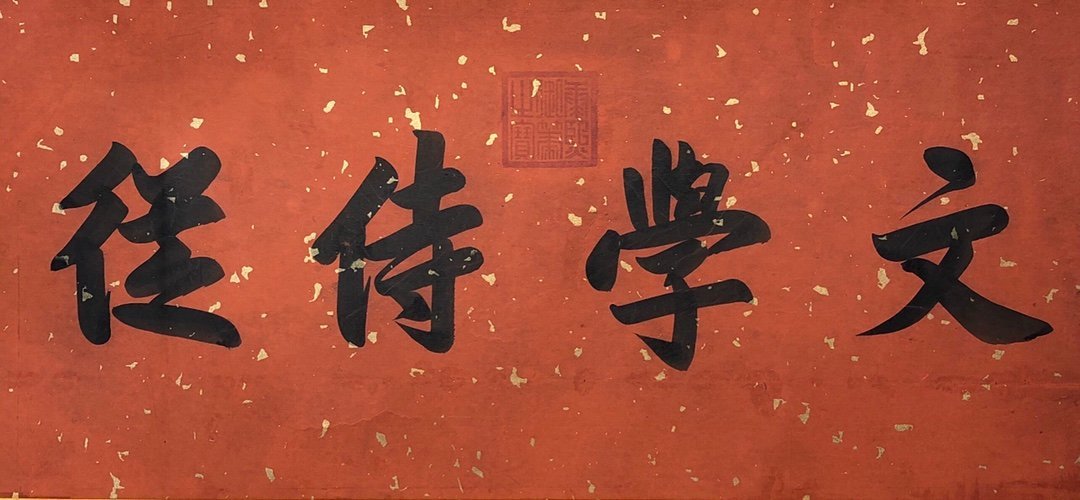 文學侍從
康熙
御筆
之寶